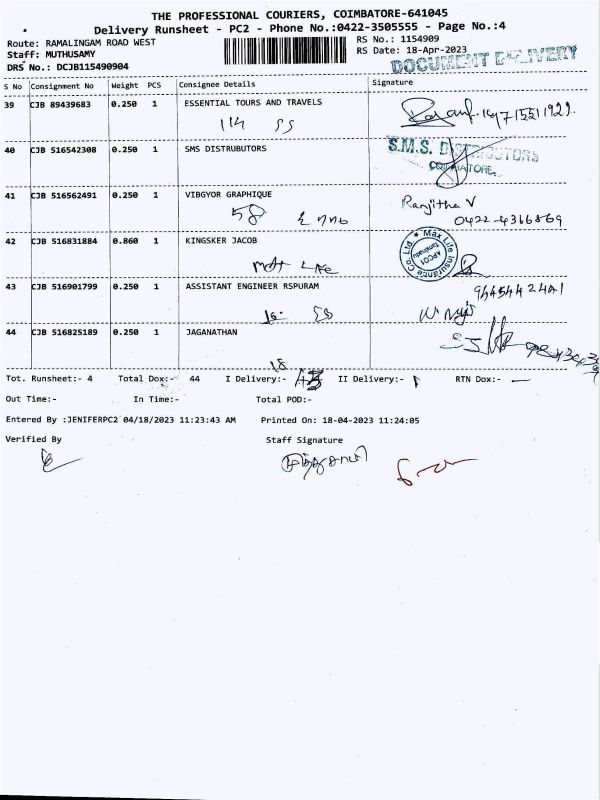 THE PROFESSIONAL COURIERS, COIMBATORE-641045
Delivery Runsheet - PC2 - Phone No.:0422-3505555 - Page No.:4
Route: RAMALINGAM ROAD WEST
RS No.: 1154909
Staff: MUTHUSAMY
RS Date: 18-Apr-2023
DRS No.: DCJB115490904
DOCUMENT DELIVERY
S No Consignment No Weight PCS Consignee Details Signature
39 CJB 89439683 0.250 1 ESSENTIAL TOURS AND TRAVELS
114 SS
40 CJB 516542308 0.250 1 SMS DISTRUBUTORS
S.M.S. DISTRIBUTORS
COIMBATORE.
41 CJB 516562491 0.250 1 VIBGYOR GRAPHIQUE
Ranjitha V
58
0422-4366869
42 CJB 516831884 0.860 1 KINGSKER JACOB
Max Life Insurance Co. Ltd.
43 CJB 516901799 0.250 1 ASSISTANT ENGINEER RSPURAM
44 CJB 516825189 0.250 1 JAGANATHAN
18
Tot. Runsheet:- 4 Total Dox:- 44 I Delivery:- II Delivery:- RTN Dox:-
Out Time:- In Time:- Total POD:-
Entered By :JENIFERPC2 04/18/2023 11:23:43 AM Printed On: 18-04-2023 11:24:05
Verified By Staff Signature